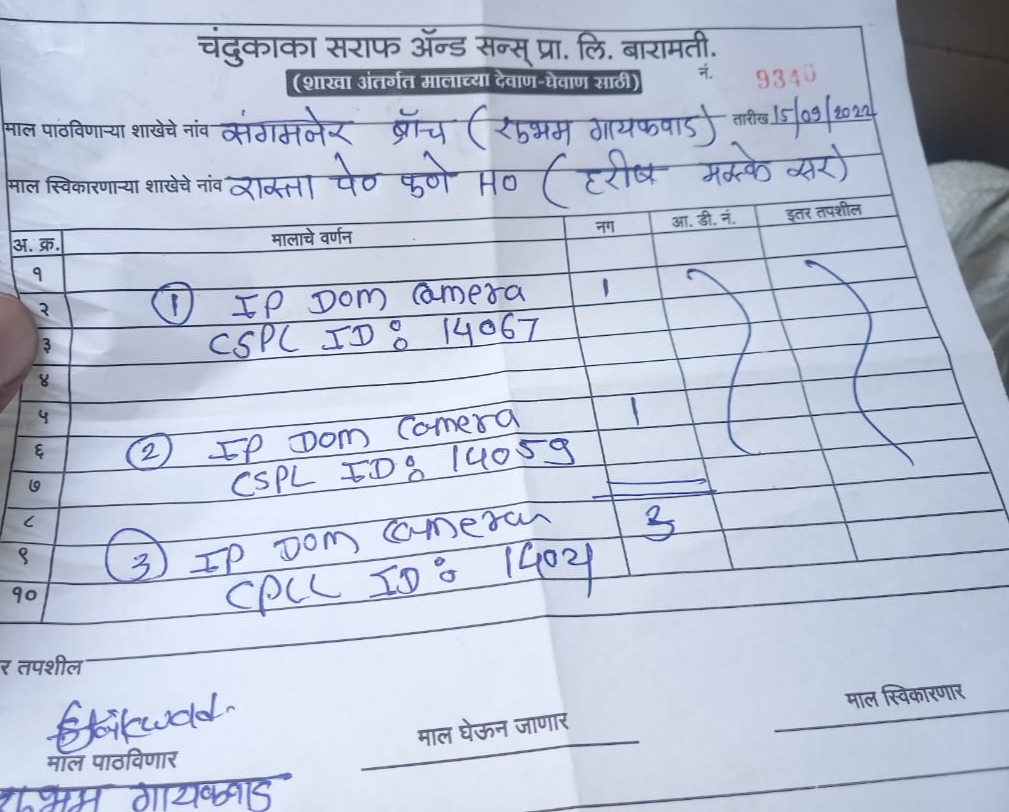 चंदुकाका सराफ ॲन्ड सन्स् प्रा. लि. बारामती.
(शाखा अंतर्गत मालाच्या देवाण-घेवाण साठी)
नं. 9340
माल पाठविणाऱ्या शाखेचे नांव संगमनेर ब्रॉच (शुभम गायकवाड) तारीख 15/09/2022
माल स्विकारणाऱ्या शाखेचे नांव रास्ता पेठ पुणे HO (हरीष मस्के सर)
अ. क्र. मालाचे वर्णन नग आ. डी. नं. इतर तपशील
१
२ ① IP DOM Camera 1
३ CSPL ID: 14067
४
५
६ ② IP DOM Camera 1
७ CSPL ID: 14059
८
९ ③ IP DOM Camera 3
१० ID:
र तपशील
माल पाठविणार
माल घेऊन जाणार
माल स्विकारणार
शुभम गायकवाड